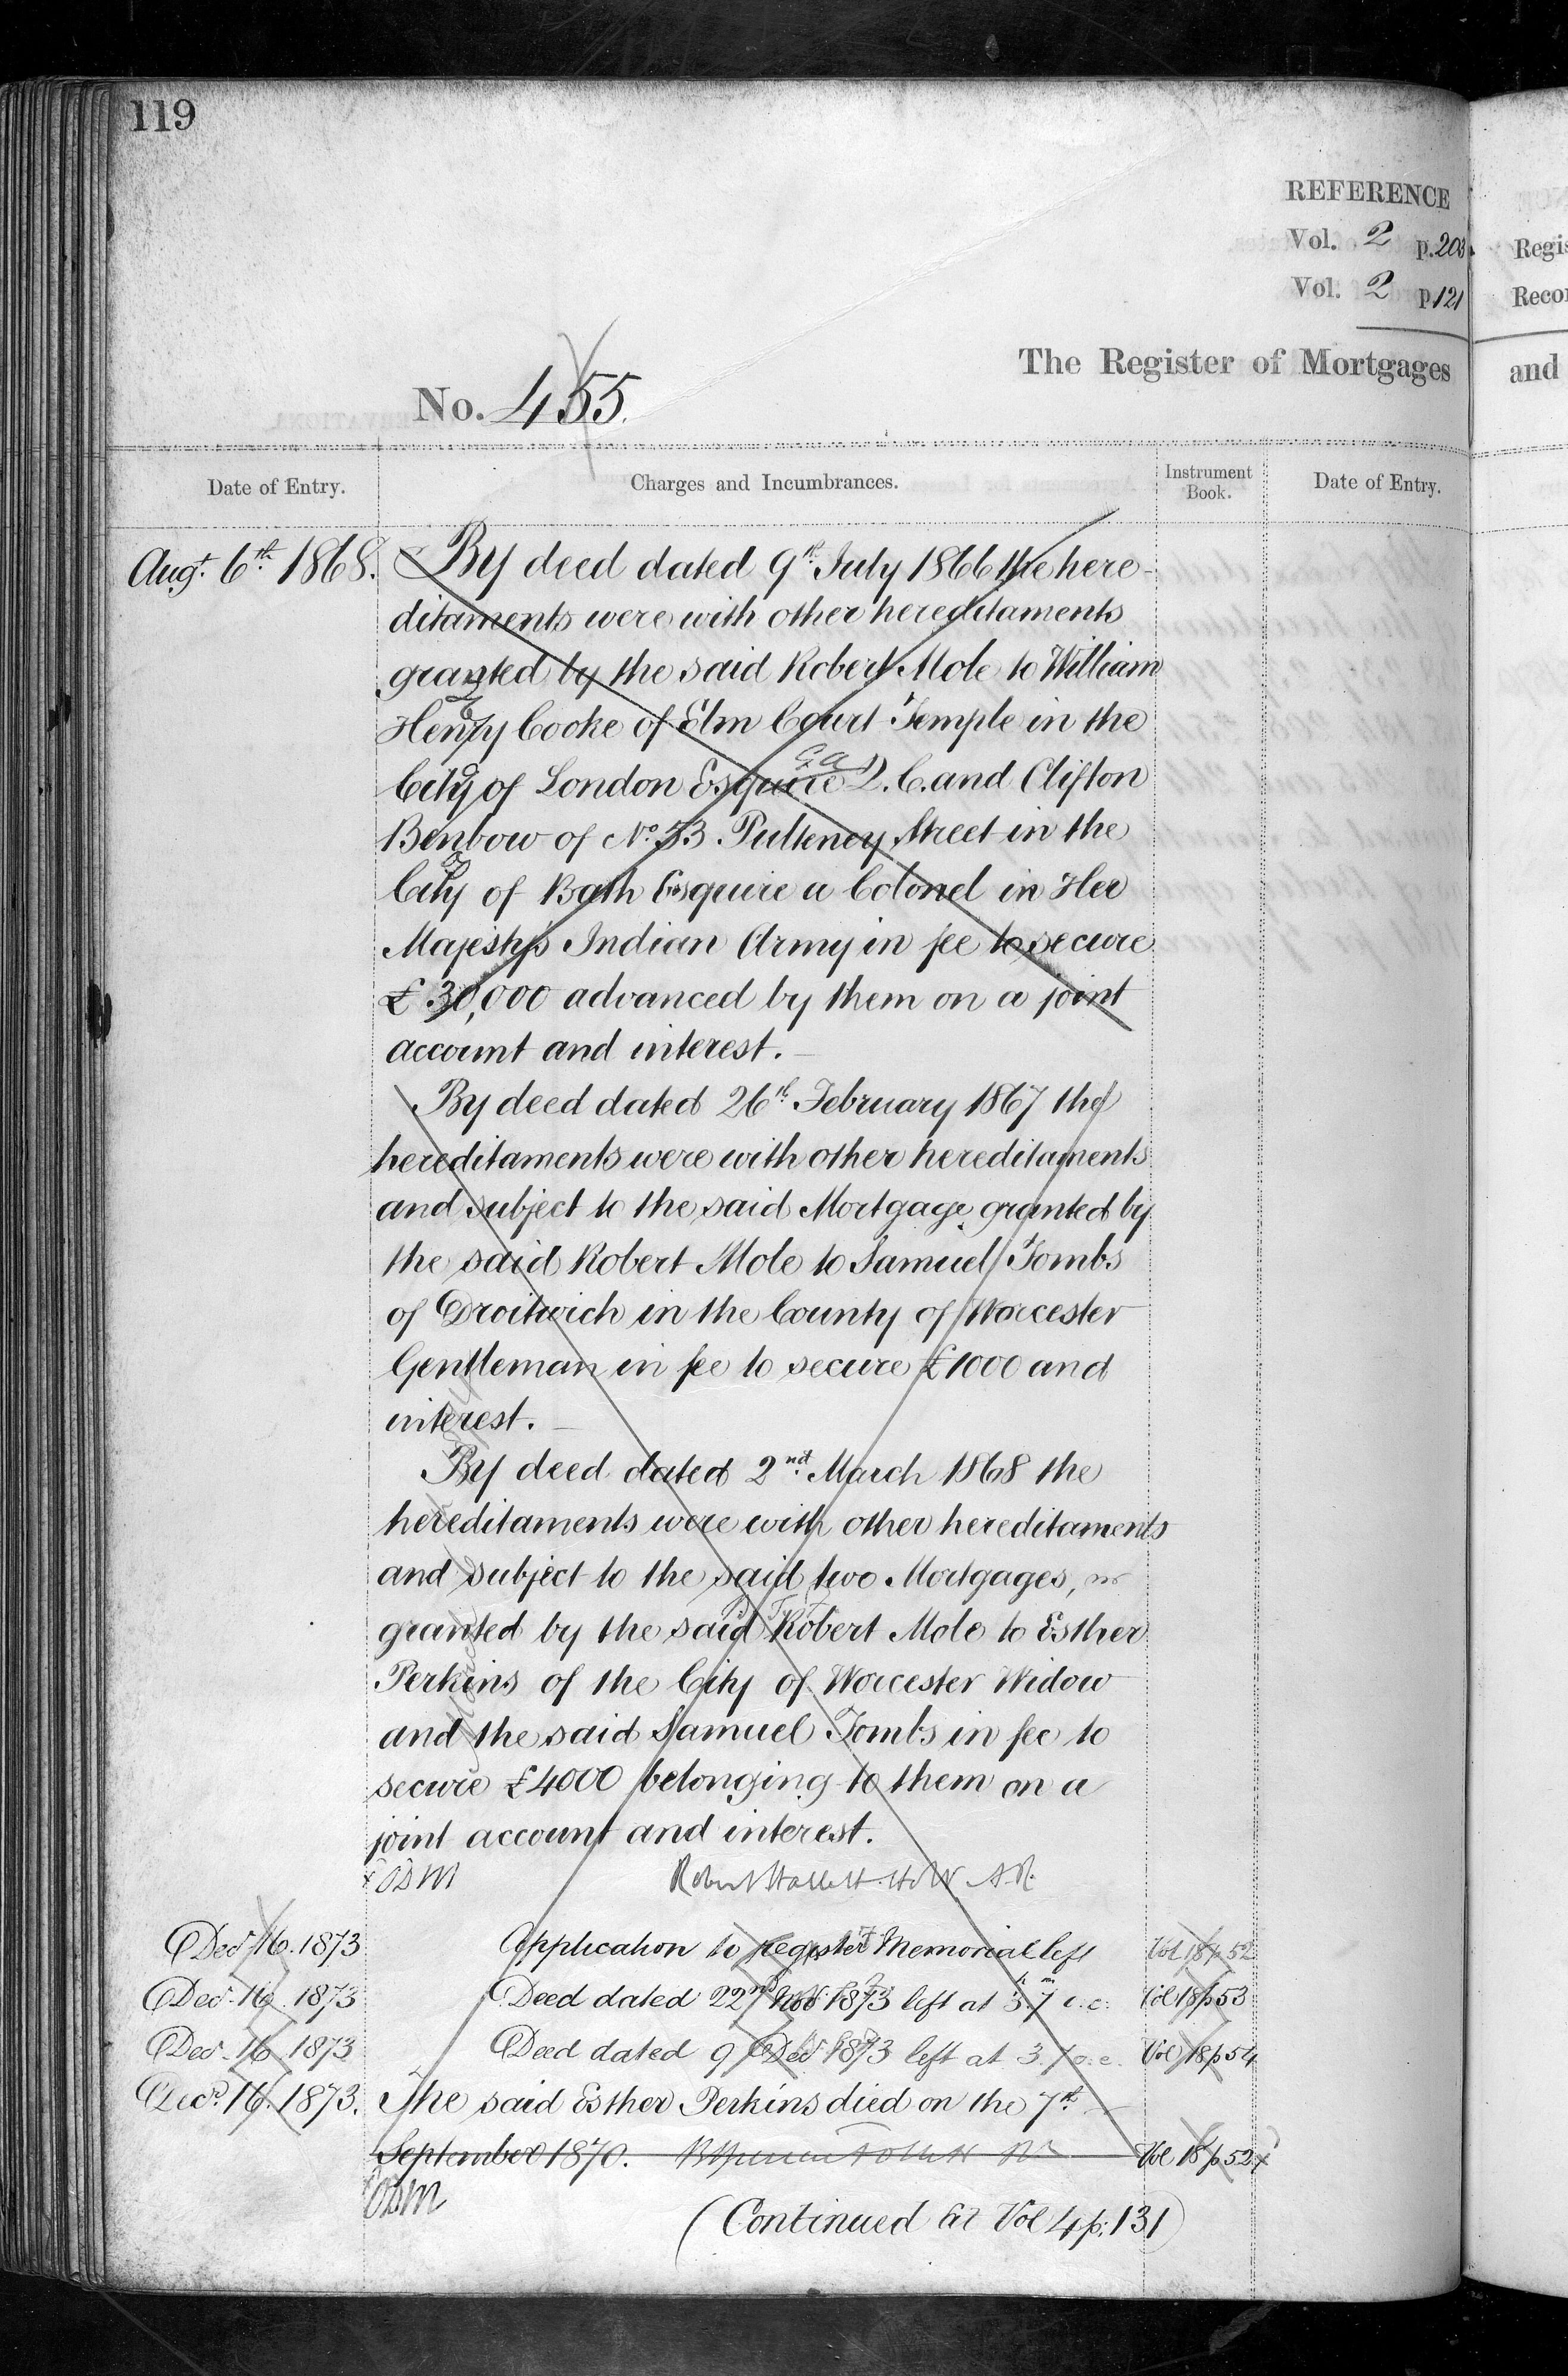 119
REFERENCE
Vol. 2 p. 203
Vol. 2 p 121
The Register of Mortgages
No. 455.
Date of Entry.
Charges and Incumbrances.
Instrument Book.
Date of Entry.
Augt. 6th. 1868.
By deed dated 9th. July 1866 the here-
ditaments were with other hereditaments
granted by the said Robert Mole to William
Henry Cooke of Elm Court Temple in the
City of London Esquire Q. C. and Clifton
Benbow of No. 53 Pulteney Street in the
City of Bath Esquire a Colonel in Her
Majesty's Indian Army in fee to secure
£30,000 advanced by them on a joint
account and interest.
By deed dated 26th. February 1867 the
hereditaments were with other hereditaments
and subject to the said Mortgage granted by
the said Robert Mole to Samuel Tombs
of Droitwich in the County of Worcester
Gentleman in fee to secure £1000 and
interest.
By deed dated 2nd. March 1868 the
hereditaments were with other hereditaments
and subject to the said two Mortgages,
granted by the said Robert Mole to Esther
Perkins of the City of Worcester Widow
and the said Samuel Tombs in fee to
secure £4000 belonging to them on a
joint account and interest.
Dec 16. 1873 Application to register Memorial left Vol 18 p 52
Dec. 16. 1873 Deed dated 22nd Nov 1873 left at 3.7 Vol 18 p 53
Dec. 16 1873 Deed dated 9 Dec 1873 left at 3.7 Vol 18 p 54
Decr. 16. 1873. The said Esther Perkins died on the 7th.
September 1870. Vol 18 p 52
(Continued at Vol 4 p. 131)
Regis
Recor
and